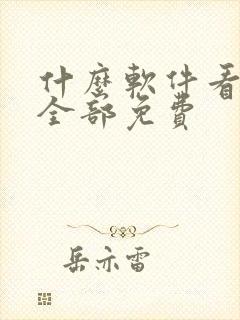 什麼軟件看
全部免費
岳亦雷